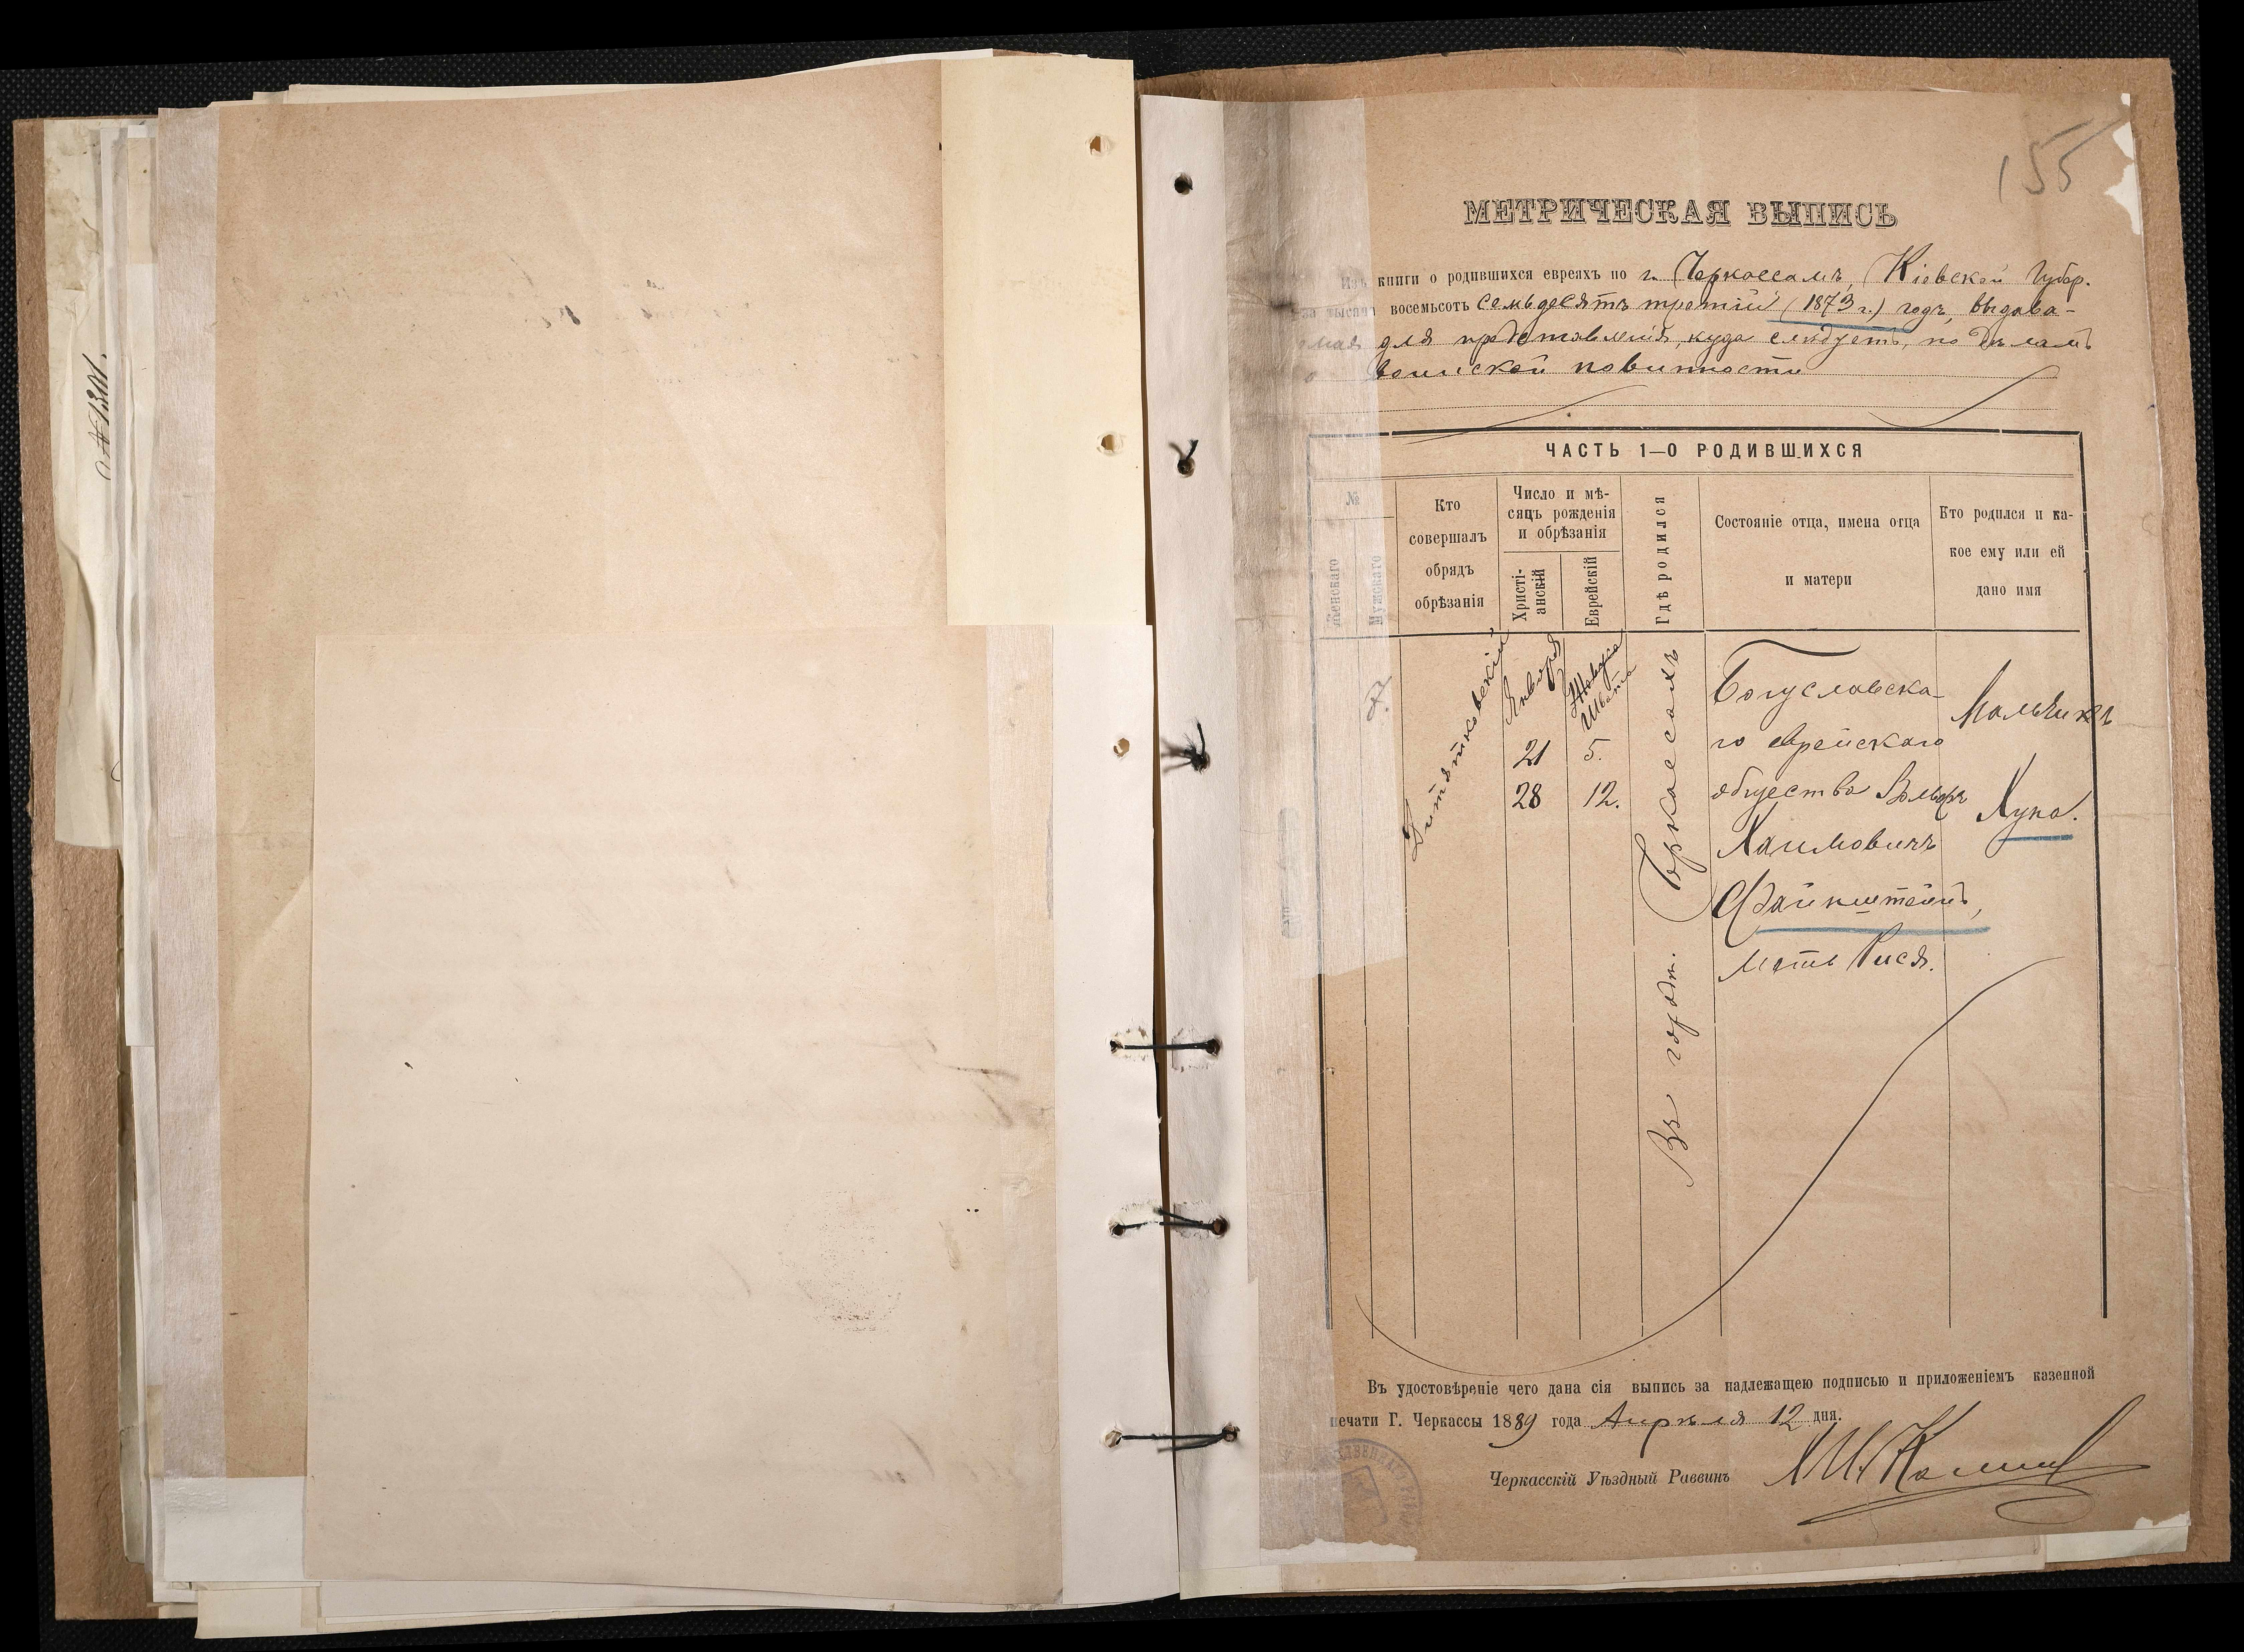 №1301.
155
МЕТРИЧЕСКАЯ ВЫПИСЬ
Изъ книги о родившихся евреяхъ по г. Черкассамъ, Кіевской Губер.
за тысяча восемьсотъ семьдесятъ третій (1873 г.) годъ, выдава-
емая для представленія, куда слѣдуетъ, по дѣламъ
о воинской повинности
ЧАСТЬ 1—О РОДИВШИХСЯ
№
Женскаго
Мужскаго
Кто совершалъ обрядъ обрѣзанія
Число и мѣ-
сяцъ рожденія
и обрѣзанія
Христі-
анскій
Еврейскій
Гдѣ родился
Состояніе отца, имена отца
и матери
Кто родился и ка-
кое ему или ей
дано имя
7.
Дитятковскій
Января
21
28
Швата
5.
12.
Въ город. Черкассахъ
Богуславска-
го еврейскаго
общества Вольфъ
Хаимовичъ
Файнштейнъ,
мать Рися.
Мальчикъ
Хуна.
Въ удостовѣреніе чего дана сія выпись за надлежащею подписью и приложеніемъ казенной
печати Г. Черкассы 1889 года Апрѣля 12 дня.
Черкасскій Уѣздный Раввинъ